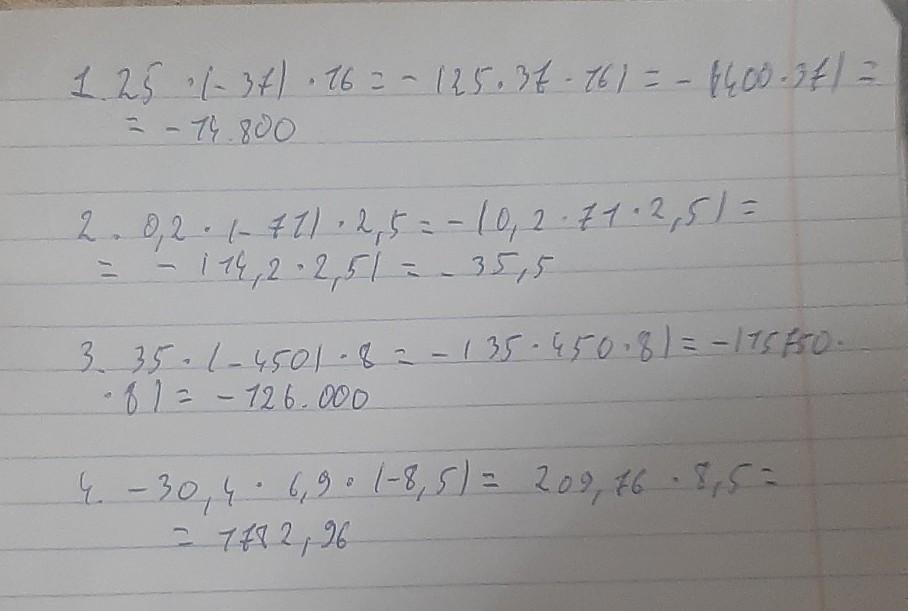 1. 25 · (- 37) · 16 = - (25 · 37 · 16) = - (400 · 37) =
= - 14.800
2. 0,2 · (- 71) · 2,5 = - (0,2 · 71 · 2,5) =
= - (14,2 · 2,5) = - 35,5
3. 35 · (- 450) · 8 = - (35 · 450 · 8) = - (15750 ·
· 8) = - 126.000
4. - 30,4 · 6,9 · (-8,5) = 209,76 · 8,5 =
= 1782,96